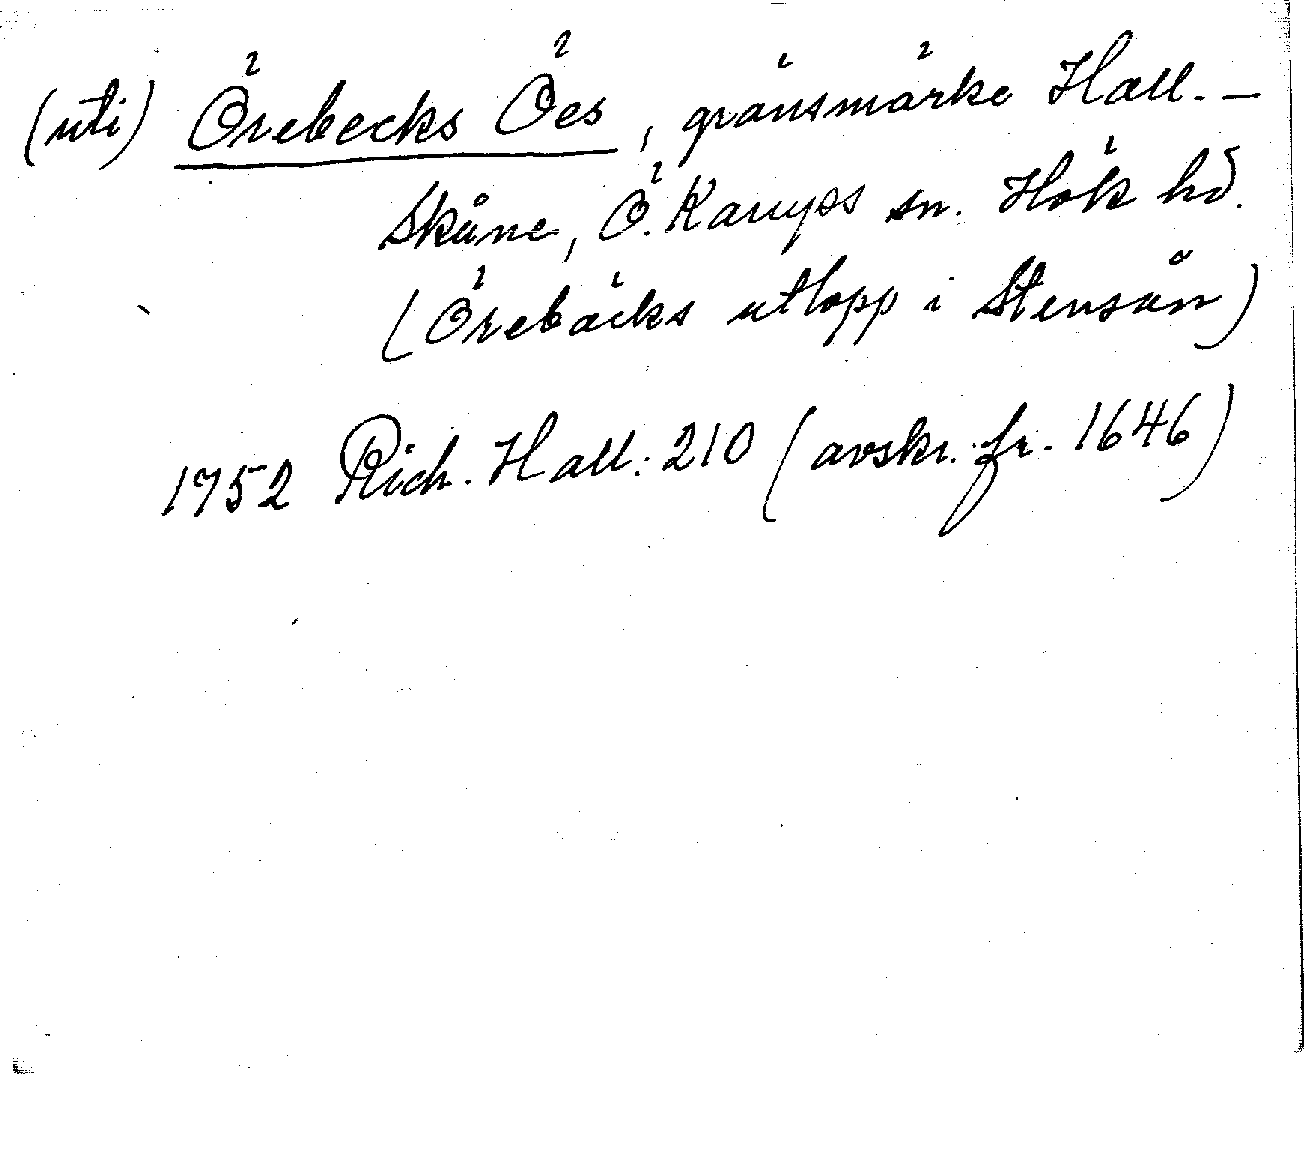 (uti) Örebecks Öes, gränsmärke Hall. –
Skåne, Ö. Karups sn. Höks hd.
(Örebäcks utlopp i Stensån)
1752 Rich. Hall: 210 (avskr. fr. 1646)